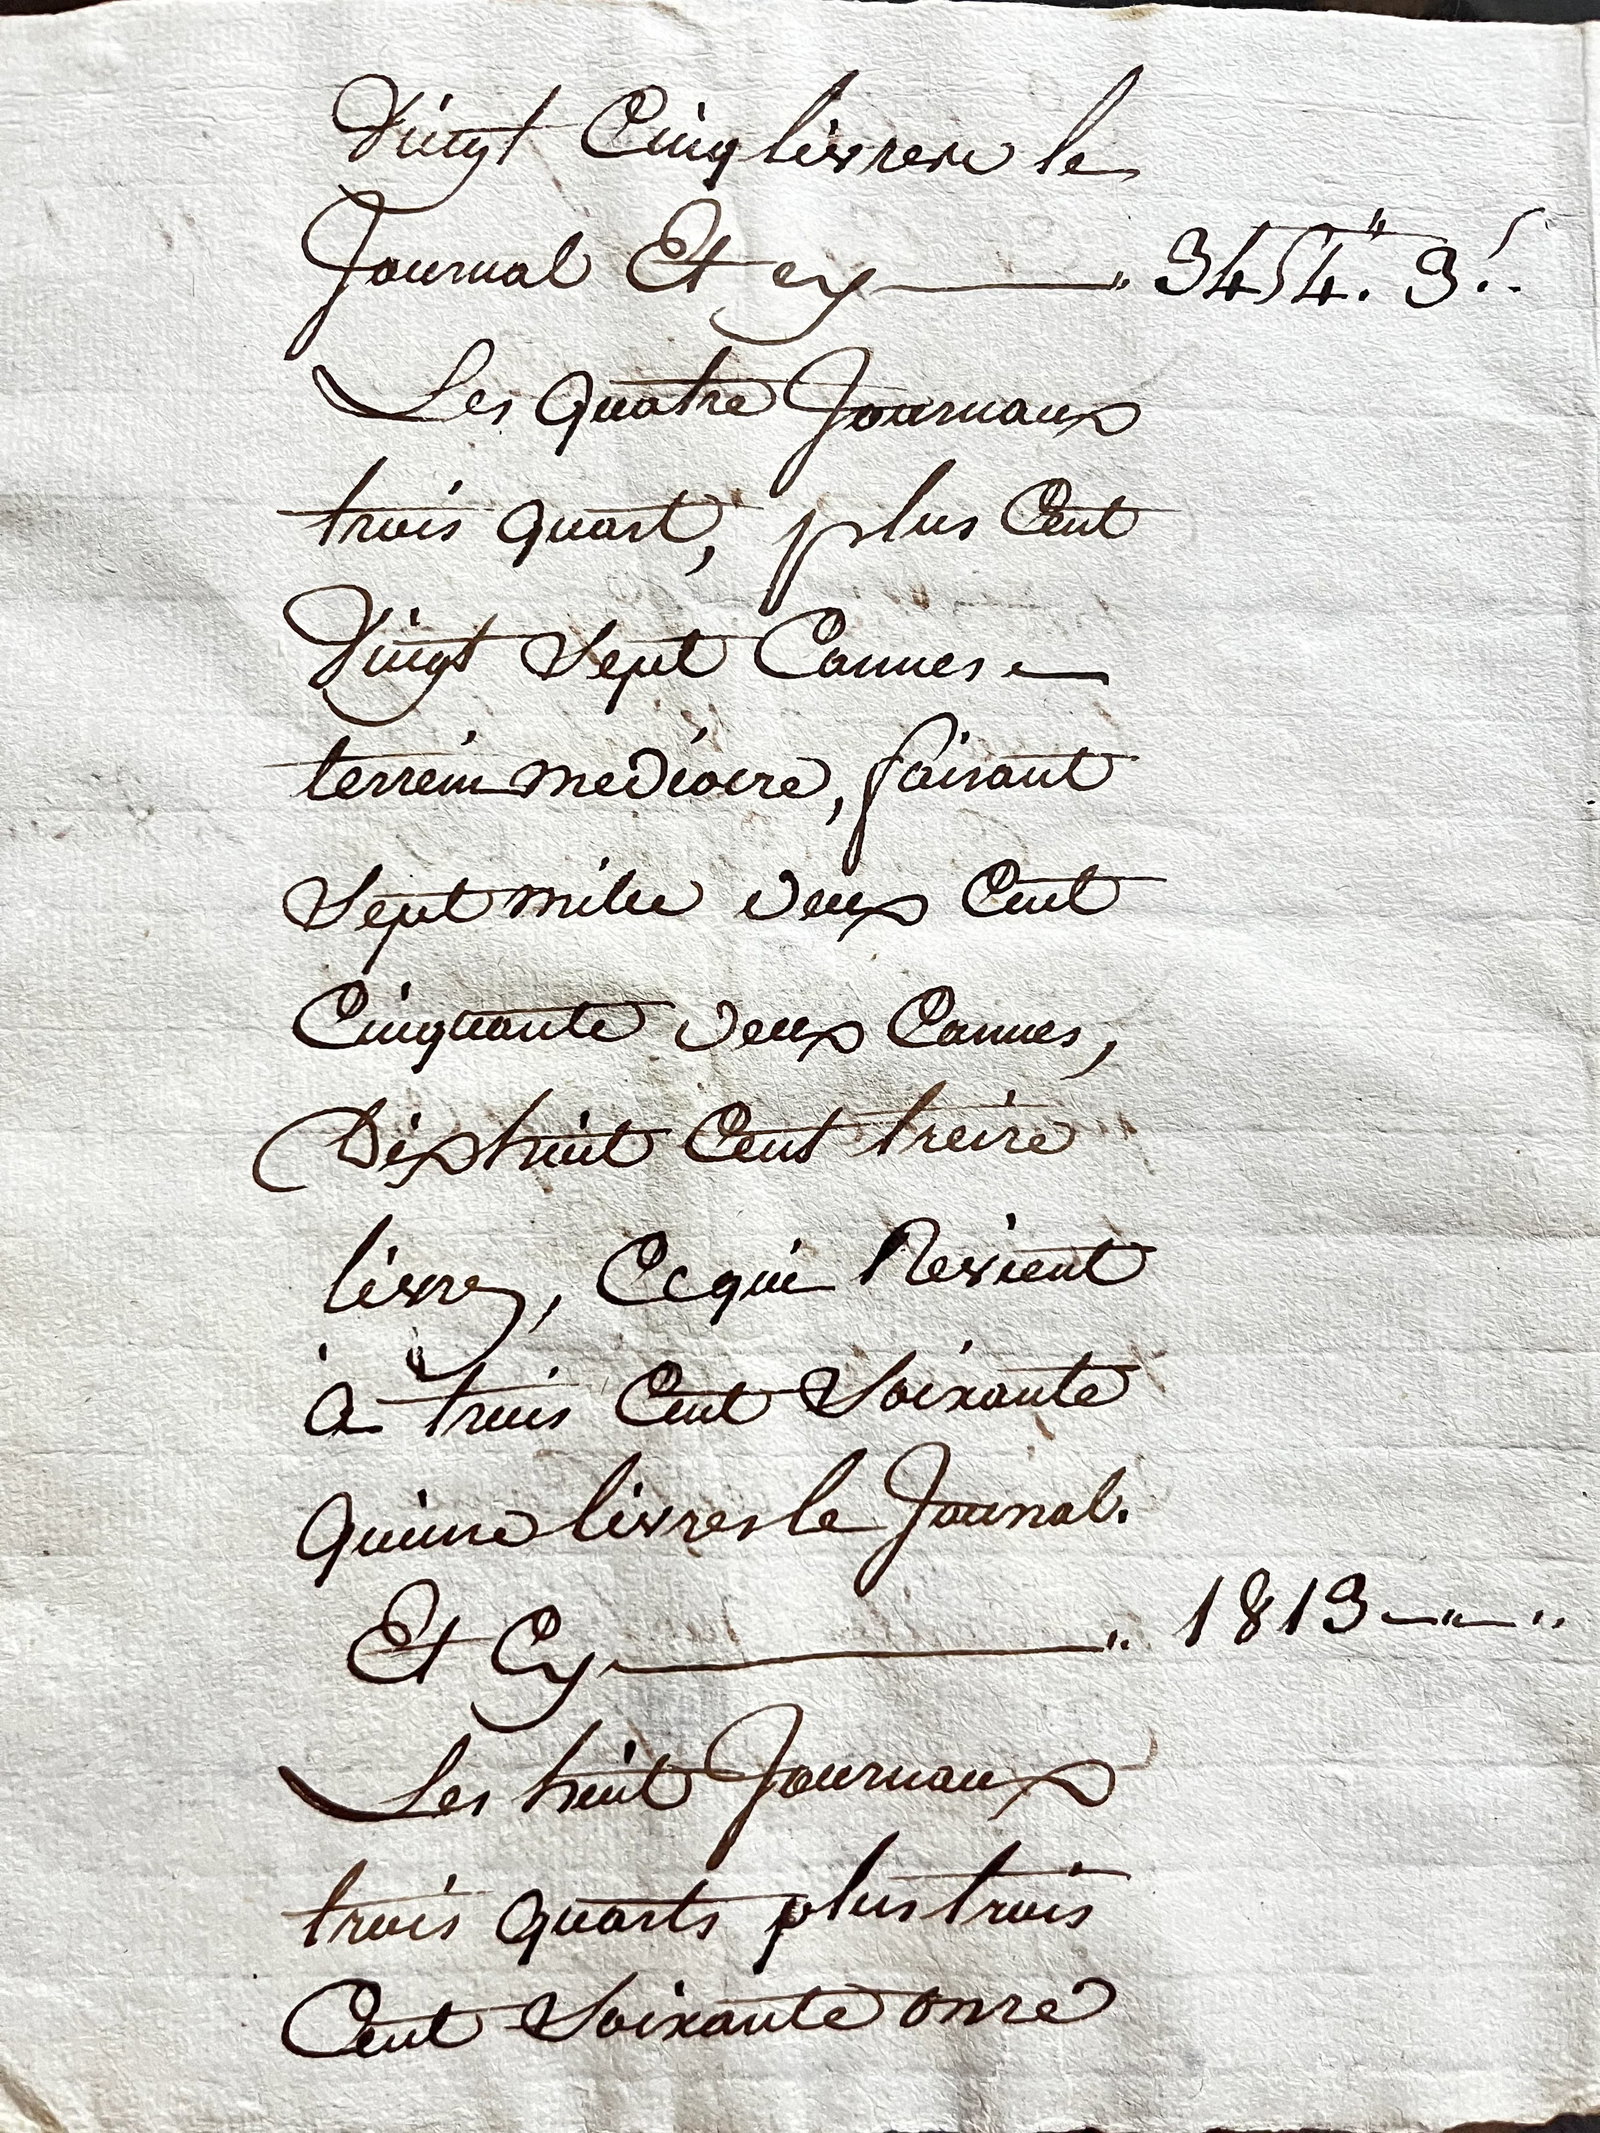 Vingt Cinq livres le
Journal Et cy ———" 3454.# 3.s..
Les quatre Journaux
trois quart, plus Cent
Vingt Sept Cannes —
terrein mediocre, faisant
Sept mille deux Cent
Cinquante deux Cannes,
Dixhuit Cent treize
livres, Cequi Revient
à trois Cent Soixante
quinze livres le Journal.
Et Cy ———". 1813 —"— ".
Les huit Journaux
trois quarts plus trois
Cent Soixante onze